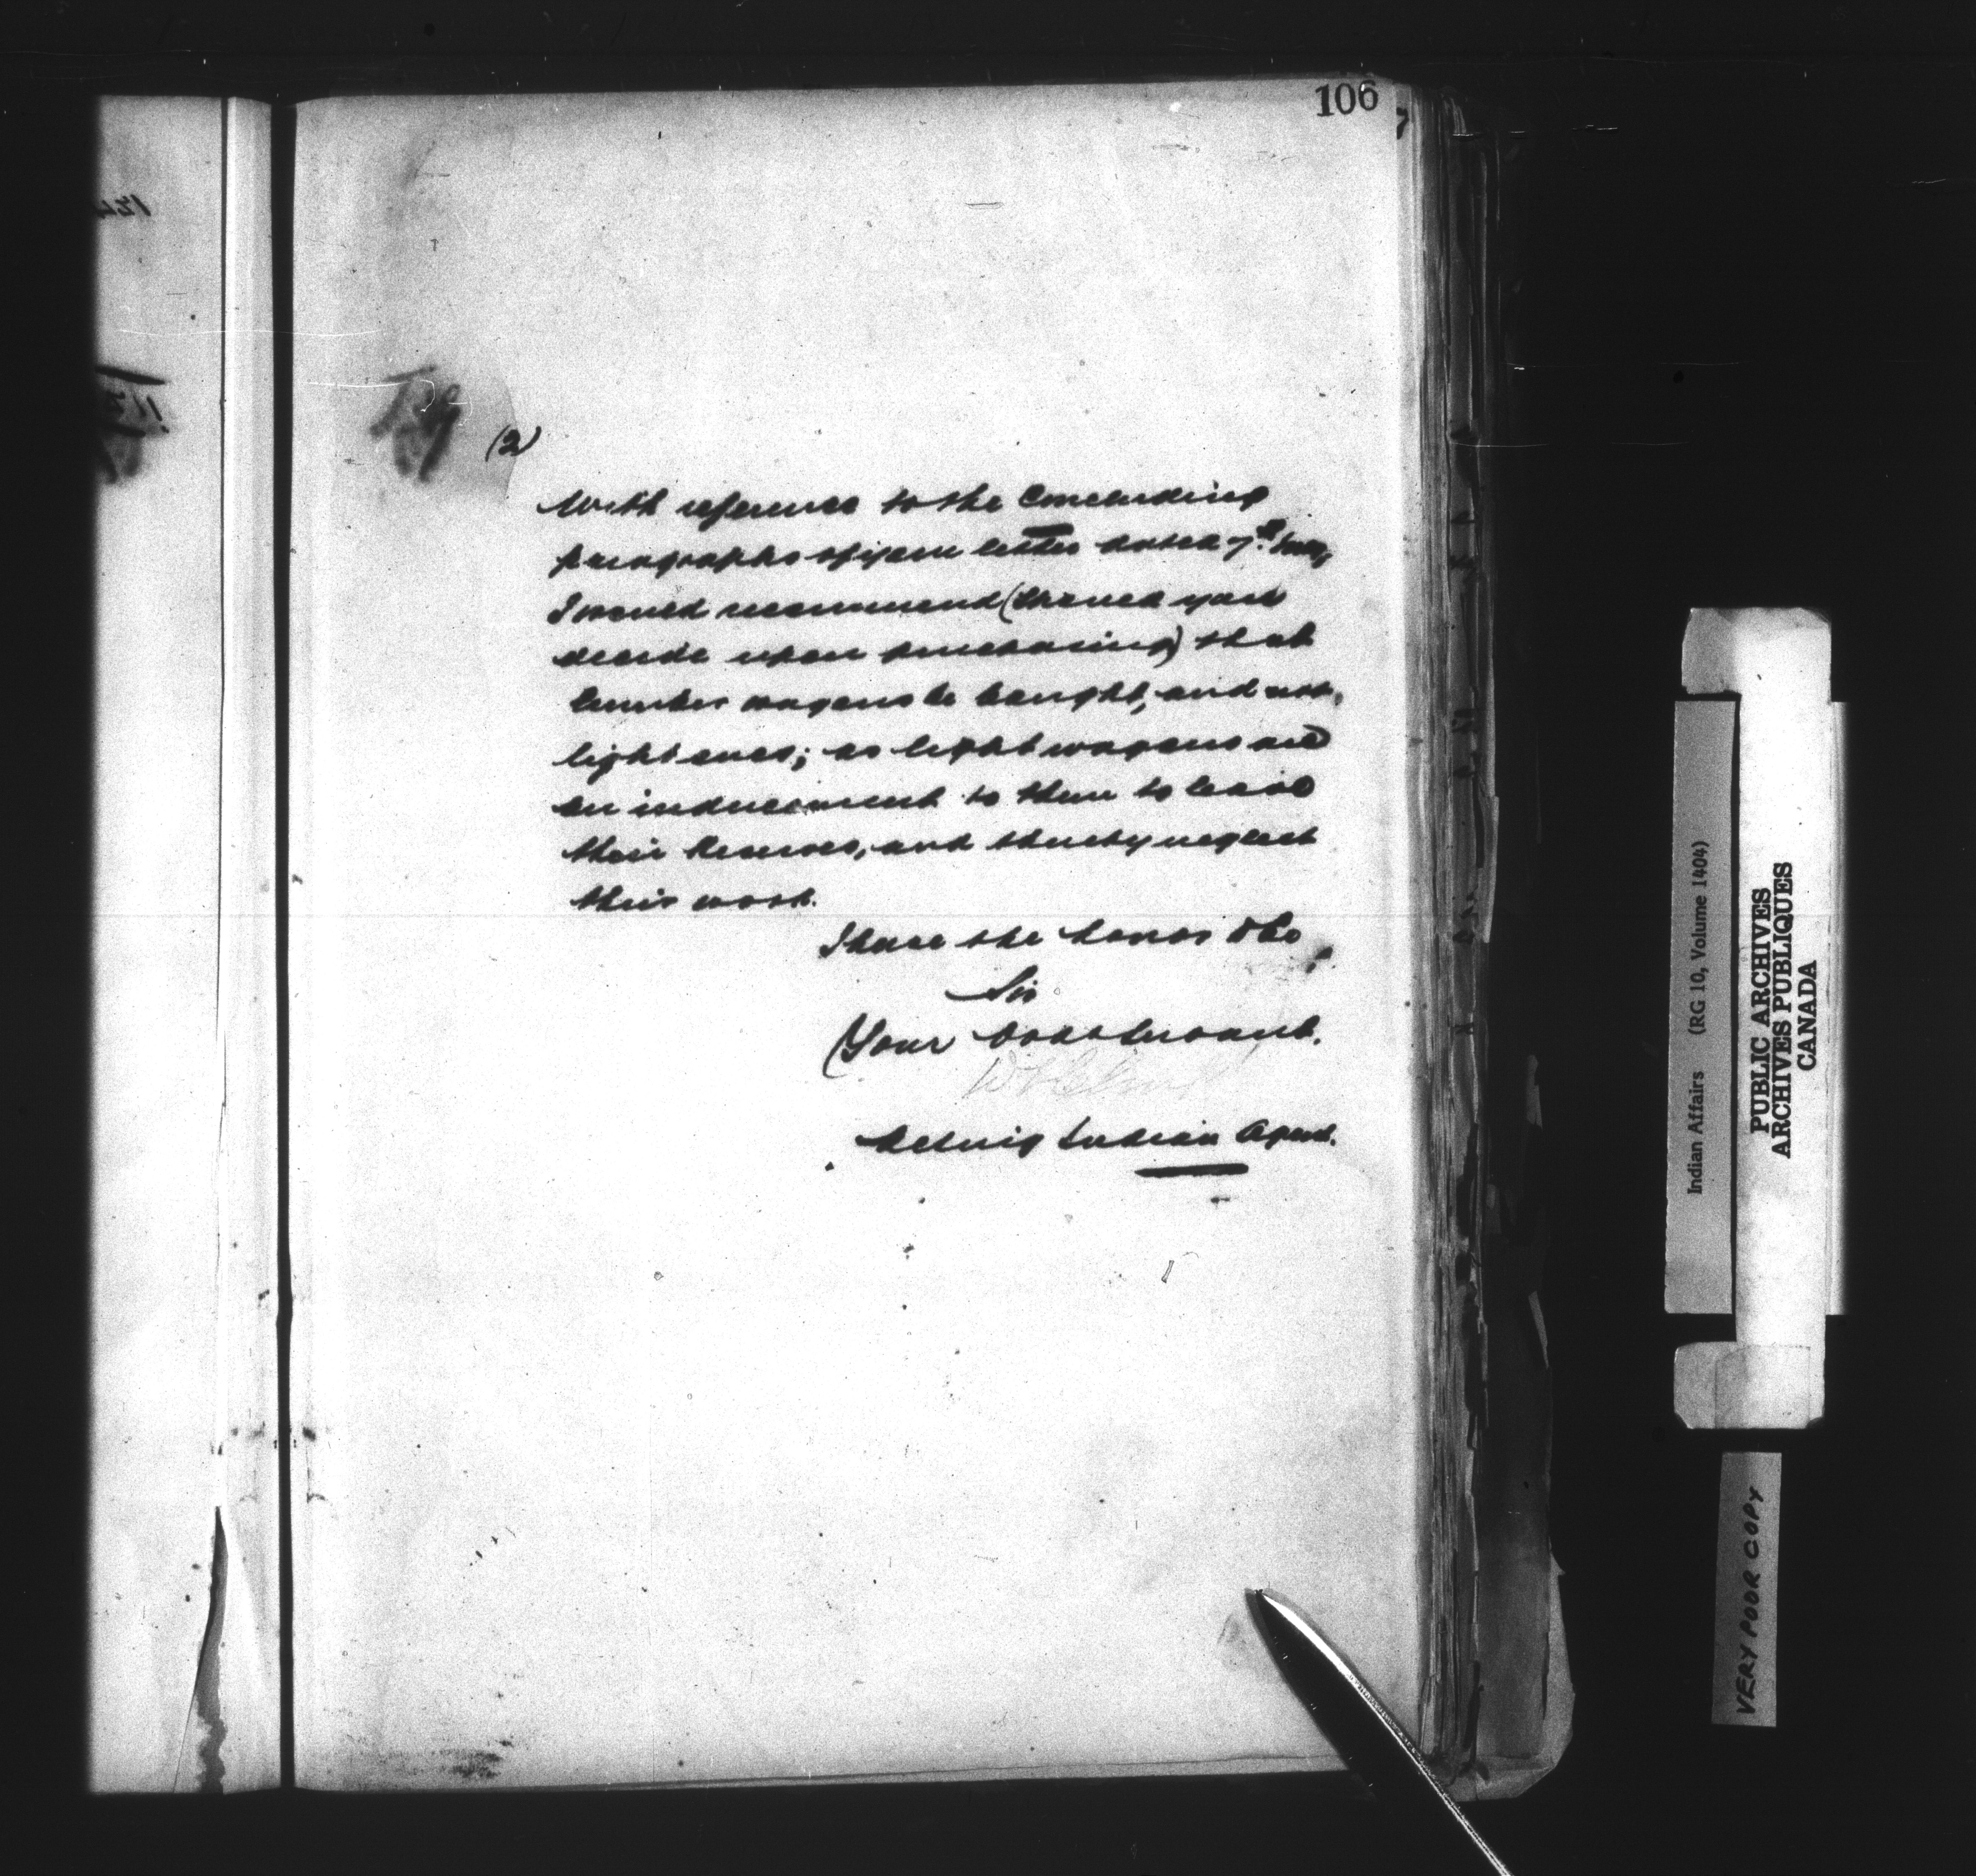 106
(2)
With reference to the Concluding
paragraphs of your letter dated 7th
I would recommend (should you
decide upon purchasing) that
lumber wagons be bought, and not
light ones; as light wagons are
an inducement to them to leave
their Reserves, and thereby neglect
their work.
I have the honor to be
Sir
Your Obdt Servant.
Acting Indian Agent.
Indian Affairs (RG 10, Volume 1404)
PUBLIC ARCHIVES
ARCHIVES PUBLIQUES
CANADA
VERY POOR COPY